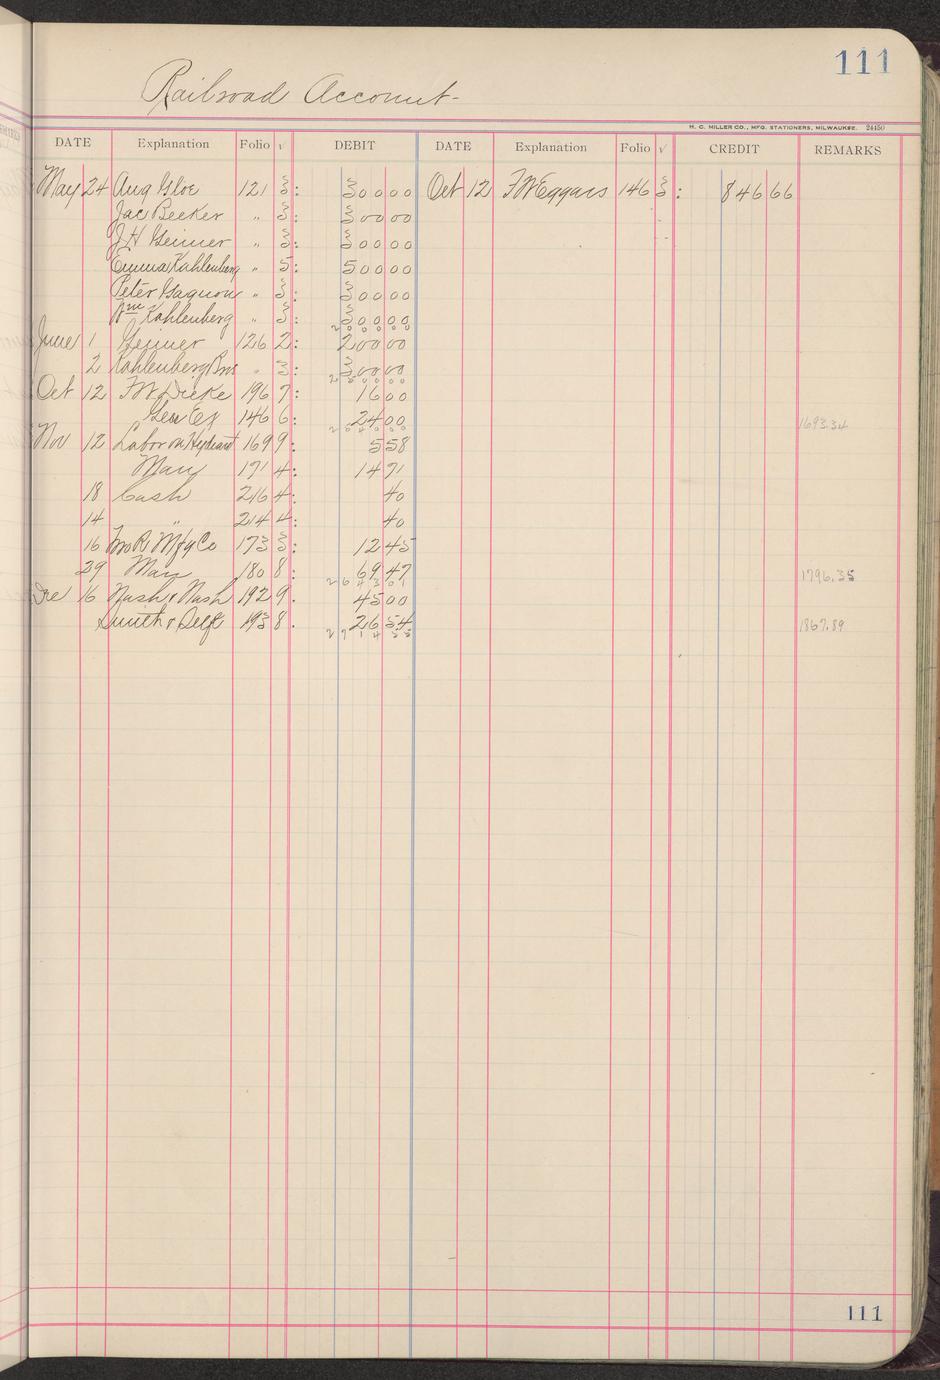 111
Railroad Account-
H. C. MILLER CO., MFG. STATIONERS, MILWAUKEE. 24450
DATE Explanation Folio √ DEBIT DATE Explanation Folio √ CREDIT REMARKS
May 24 Aug Gloe 121 3: 300 00 Oct 12 F W Eggars 146 3: 846 66
Jac Becker " 3: 300 00
J H Geimer " 3: 300 00
Emma Kahlenberg " 5: 500 00
Peter Gagnon " 3: 300 00
Wm Kahlenberg " 3: 300 00
2 0 0 0 0 0
June 1 Geimer 126 2: 200 00
2 Kahlenberg Bros " 3: 300 00
2 5 0 0 0 0
Oct 12 F W Dicke 196 7: 16 00
Geo 146 6: 24 00
2 5 4 0 0 0 1693.34
Nov 12 Labor on 169 9: 5 58
May 171 4: 14 71
18 Cash 216 4: 40
14 " 214 4: 40
16 Mfg Co 173 3: 12 45
29 May 180 8: 69 47
2 6 4 3 0 1 1796.35
Dec 16 Nash & Nash 192 9. 45 00
Smith & 193 8. 26 54
2 7 1 4 5 5 1867.89
111